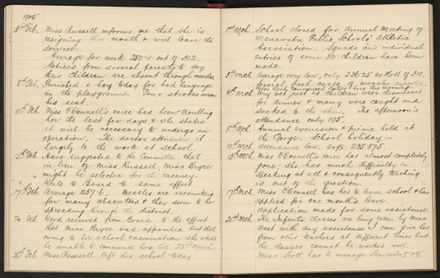 1905
3rd Feb. Miss Russell informs me that she is
resigning this month & will leave the
service.
Average for week 250.4 out of 312.
Notices from several parents to say
their children are absent through measles.
Punished a boy today for bad language
in the playground. Four strokes across
his seat.
Miss O'Connell's voice has been troubling
her the last few days & she states
it will be necessary to undergo an
operation. The doctor attributes it
largely to the work at school.
Have suggested to the Committee that
in lieu of Miss Russell Miss Boyce
might be selected for the vacancy.
Wrote to Board to same effect.
17th Feb. Average 257.6. Measles are accounting
for many absentees & they seem to be
spreading through the district.
20 Feb. Word received from Board to the effect
that Miss Boyce was appointed but that
owing to her school examinations she will
be unable to commence here till 23rd April.
Miss Russell left his school today
1st Mch. School closed for Annual Meeting of
Manawatu Public Schools' Athletic
Association. Squads and individual
entries of some 50 children have been
made.
3rd Mch. Average very low, only 236.25 on Roll of 311.
Several fresh cases of measles reported.
Very wet just as children were dismissed
for dinner & many were caught and
soaked to the skin. The afternoon's
attendance only 195.
Annual Excursion & picnic held at
the Gorge. School holiday.
10th Mch. Attendance low. Avge 235.875.
Miss O'Connell's voice has almost completely
gone; she has much difficulty in
speaking at all & consequently teaching
is out of the question.
17th Mch. Miss O'Connell has had to leave school & has
applied for one month's leave.
Application made for some assistance.
The Infants classes are being seen by Miss
West with any assistance I can give her
from other teachers at different times but
the classes cannot be worked well.
Miss Scott has to manage